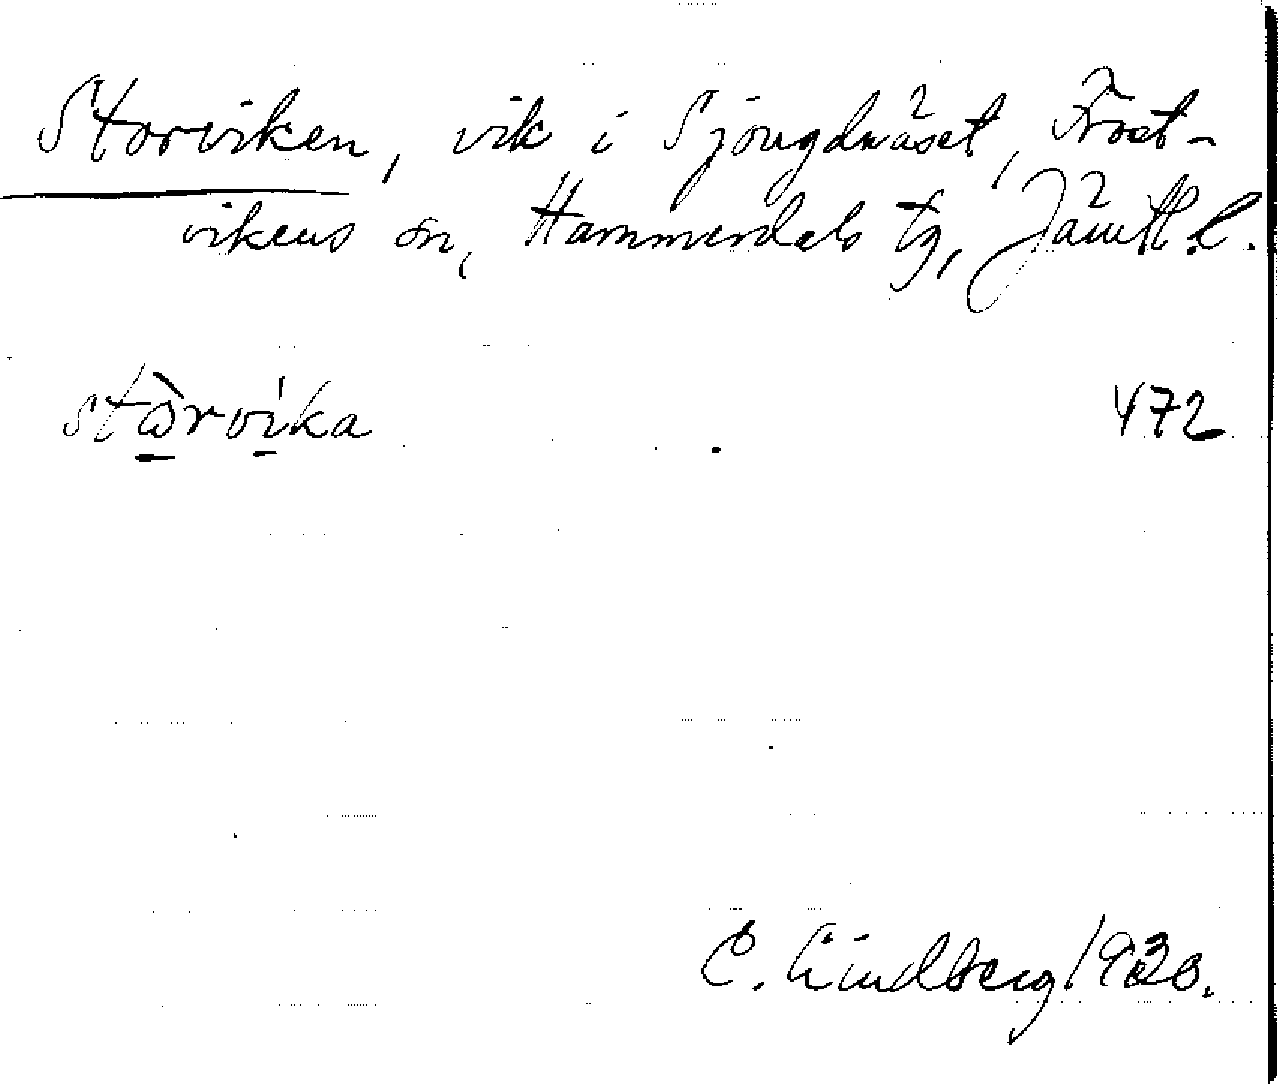 Storviken, vik i Sjöugdnäset, Frost-
vikens sn, Hammerdals tg, Jämtl. l.
stòrvíka 472
E. Lindberg 1930.